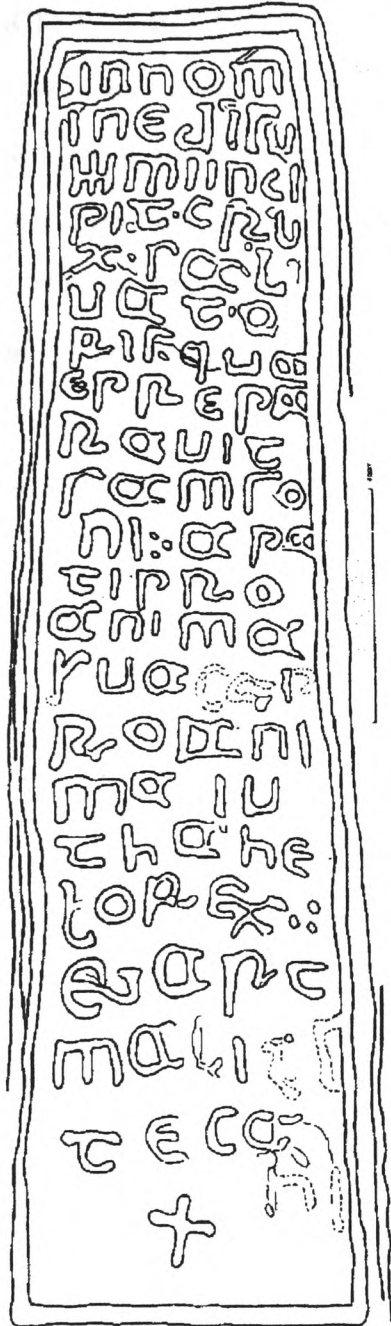 innom
inedisu
mmiinci
pit·cru
x·sal
uato
risqua
eprepa
rauit
samso
ni:apa
tipro
anima
sua et p
roani
maiu
thahe
lorex:
et art
mali et
tecan
+